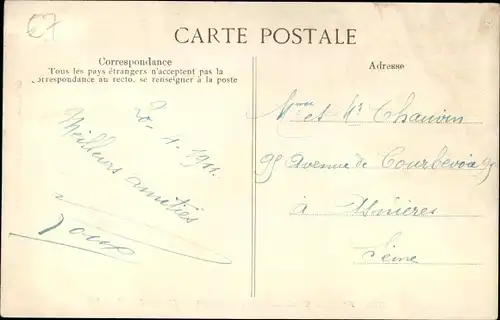 67
CARTE POSTALE
Correspondance
Tous les pays étrangers n'acceptent pas la
correspondance au recto, se renseigner à la poste
Adresse
20-4-1911.
Meilleurs amitiés
Mme et Mr Chauvin
95 Avenue de Courbevoie 95
à Asnières
Seine